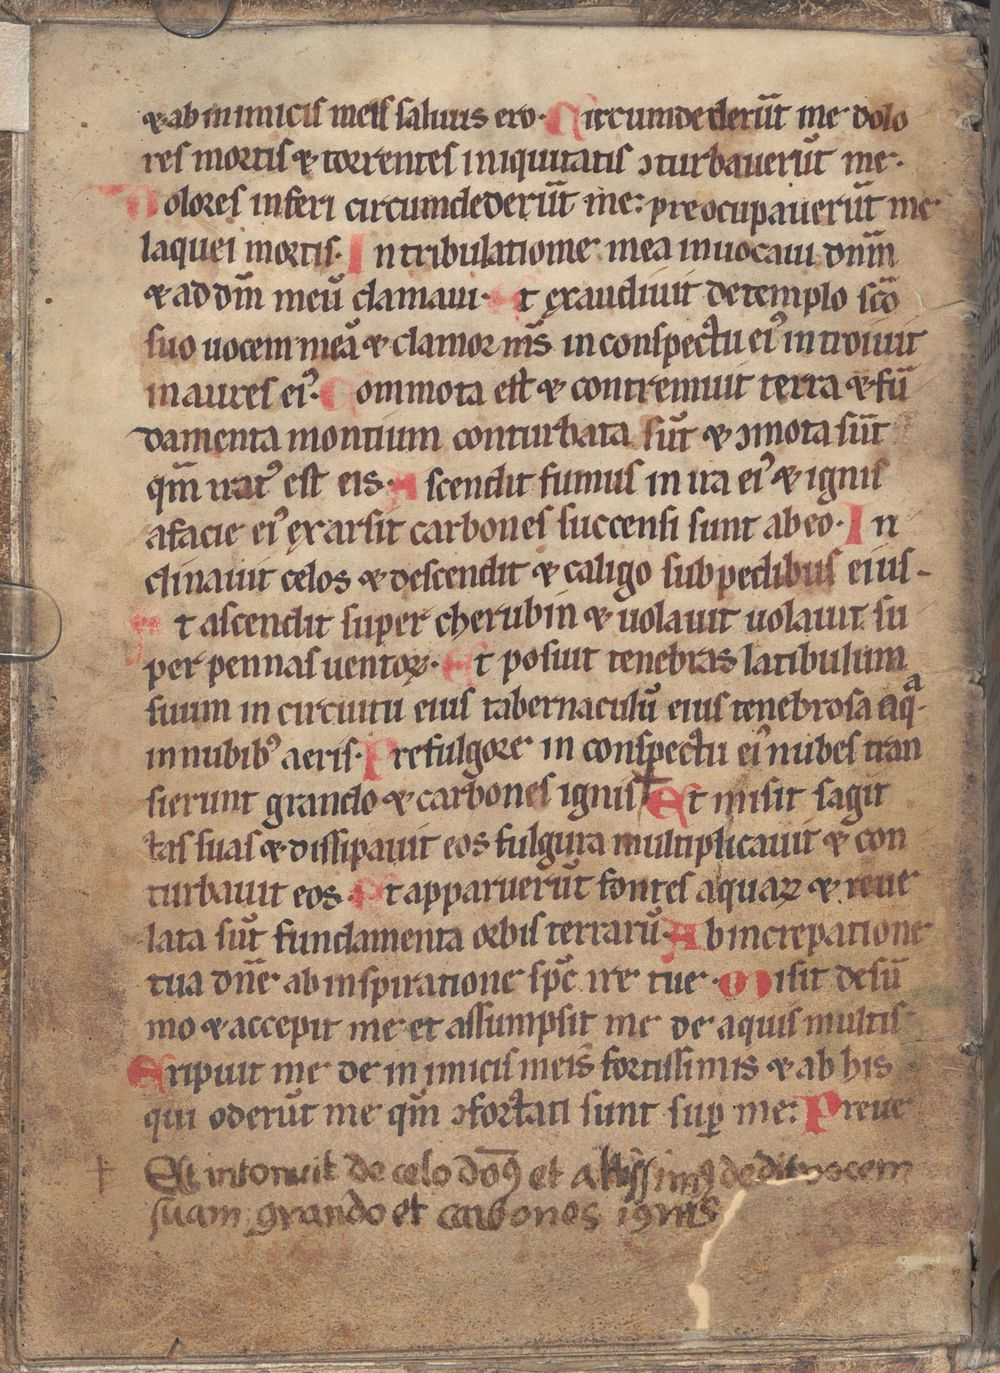 ⁊ab inimicis meis saluus ero. Circumdederūt me dolo
res mortis ⁊ torrentes iniquitatis ɔturbauerūt me.
Dolores inferi circumdederūt me: preocupauerūt me
laquei mortis. In tribulatione mea inuocaui dn̄m
⁊ ad dm̄ meū clamaui. Et exaudiuit de templo scō
suo uocem meā ⁊ clamor m̄s in conspectu eiꝰ introiuit
in aures eiꝰ. Commota est ⁊ contremuit terra ⁊ fū
damenta montium conturbata sūt ⁊ ɔmota sūt
qm̄ iratꝰ est eis. Ascendit fumus in ira eiꝰ ⁊ ignis
afacie eiꝰ exarsit carbones succensi sunt ab eo. In
clinauit celos ⁊ descendit ⁊ caligo sub pedibus eius.
Et ascendit super cherubin ⁊ uolauit uolauit su
per pennas uentoꝝ. Et posuit tenebras latibulum
suum in circuitu eius tabernaculū eius tenebrosa aqͣ
in nubibꝰ aeris. Prefulgore in conspectu eiꝰ nubes tran
sierunt grando ⁊ carbones ignis † Et misit sagit
tas suas ⁊ dissipauit eos fulgura multiplicauit ⁊ con
turbauit eos. Et apparuerūt fontes aquaꝝ ⁊ reue
lata sūt fundamenta orbis terrarū. Ab increpatione
tua dn̄e ab inspiratione spc̄ ire tue. Misit desū
mo ⁊ accepit me et assumpsit me de aquis multis
Eripuit me de inimicis meis fortissimis ⁊ ab his
qui oderūt me qm̄ ɔfortati sunt suꝑ me: Preue
† Et intonuit de celo dōꝰ et altissimꝰ dedit uocem
suam grando et carbones ignis